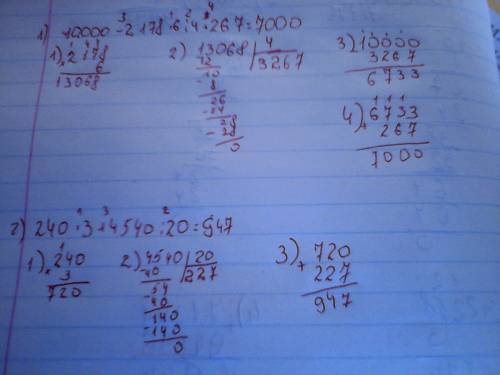 1) 10000 -³ 2178 ·¹ 6 :² 4 +⁴ 267 = 7000
1) × 2178
6
13068
2) 13068 | 4
12 | 3267
10
8
26
24
28
- 28
0
3) 10000
3267
6733
4) + 6733
267
7000
2) 240 ·¹ 3 +³ 4540 :² 20 = 947
1) × 240
3
720
2) 4540 | 20
- 40 | 227
54
40
140
- 140
0
3) + 720
227
947